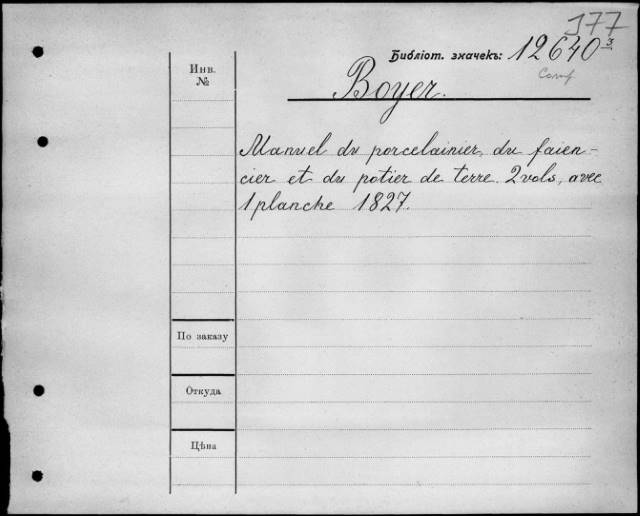 177
Библіот. значекъ: 12640³
Boyer.
Инв.
№
Manuel du porcelainier, du faien-
cier et du potier de terre. 2 vols, avec
1 planche 1827.
По заказу
Откуда
Цѣна